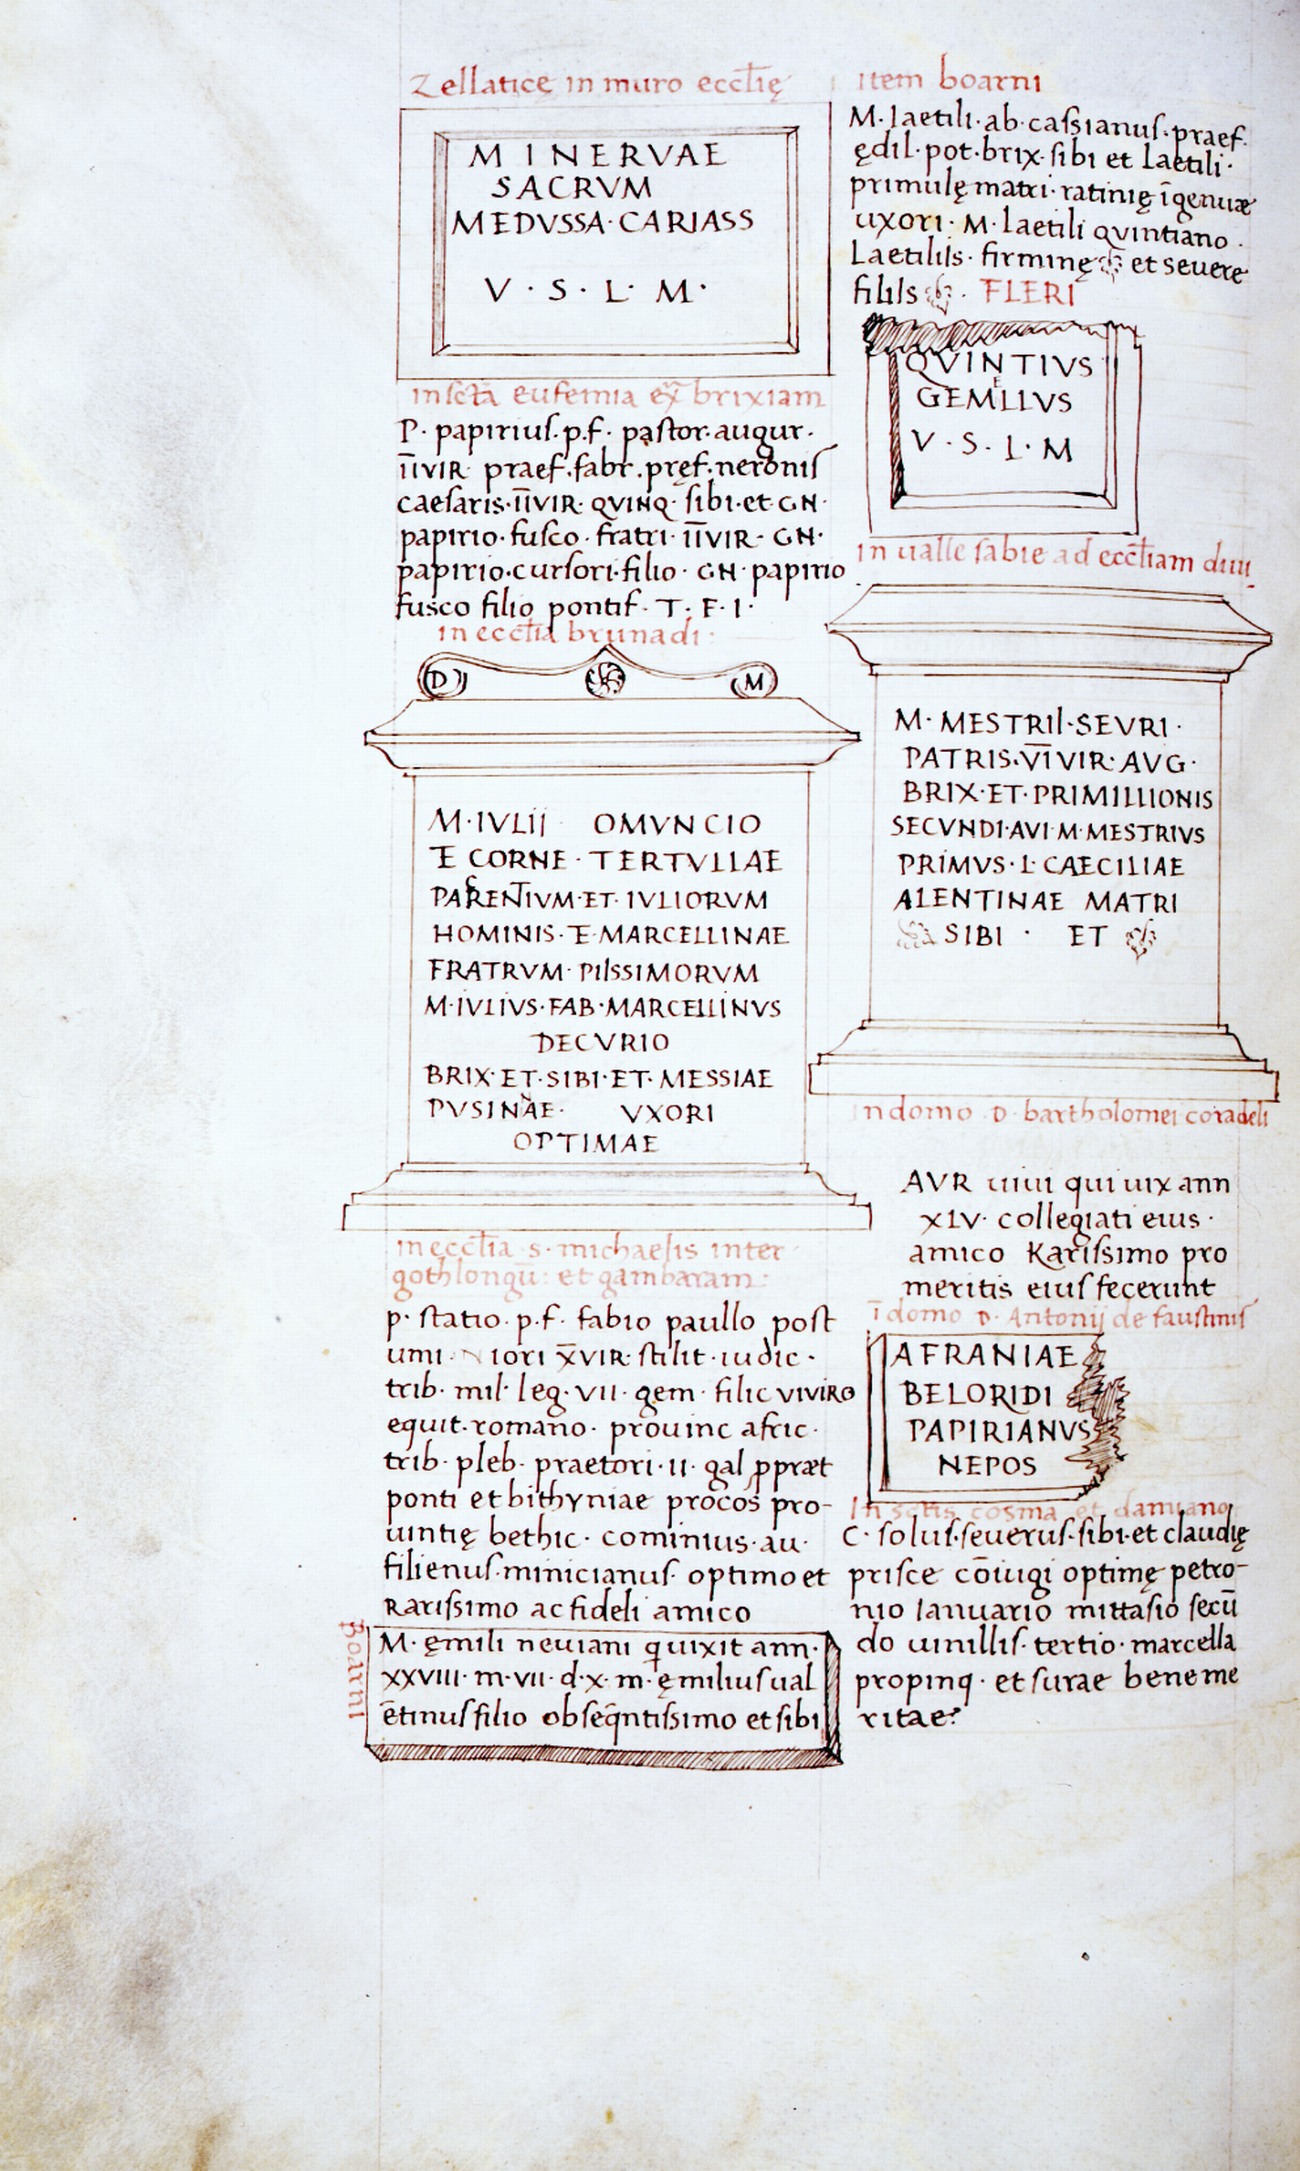 Zellaticę in muro eccl̄ię
MINERVAE
SACRVM
MEDVSSA·CARIASS
V·S·L·M·
in sctā eufemia ex̄ brixiam
P· papirius.p.f· pastor·augur·
IIVIR praef.fabr.pręf.neronis
caesaris·IIVIR·QVINQ· sibi·et·GN·
papirio·fusco·fratri·IIVIR·GN·
papirio·cursori·filio·GN·papirio
fusco filio pontif·T·F·I·
in eccl̄ia brunadi:
D M
M·IVLII OMVNCIO
E CORNE·TERTVLLAE
PARENTIVM·ET·IVLIORVM
HOMINIS·E·MARCELLINAE
FRATRVM·PIISSIMORVM
M·IVLIVS·FAB·MARCELLINVS
DECVRIO
BRIX·ET·SIBI·ET·MESSIAE
PVSINNAE· VXORI
OPTIMAE
in eccl̄ia s· michaelis inter
gothlongū: et gambaram:
p· statio·p·f· fabio paullo post
umi· N iori X̄VIR·stilit·iudic·
trib· mil· leg· VII· gem· filic VIVIRO
equit·romano· prouinc afric·
trib· pleb· praetori·II· gal ꝓpræt
ponti et bithyniae procos pro-
uintię bethic· cominius·au·
filienus·minicianus· optimo et
Rarissimo ac fideli amico
Boarni
M· ęmili neuiani q uixit ann·
XXVIII· m·VII· d·X· m·ęmilius ual
ētinus filio obseq̄ntissimo et sibi
item boarni
M·laetili·ab·cassianus·praef·
ędil·pot·brix·sibi et Laetili·
primulę matri·ratinię īgenuæ
uxori· M·laetili quintiano·
Laetiliis·firminę et seuere
filiis · FLERI
QVINTIVS
GEMELLVS
V·S·L·M
in ualle sabie ad eccl̄iam diui
M·MESTRII·SEVRI·
PATRIS·V̄I VIR·AVG·
BRIX·ET·PRIMILLIONIS
SECVNDI·AVI·M·MESTRIVS
PRIMVS·L·CAECILIAE
ALENTINAE MATRI
SIBI · ET
In domo D· bartholomei coradeli
AVR uiui qui uix ann
XLV· collegiati eius·
amico Karissimo pro
meritis eius fecerunt
ī domo D· Antonij de faustinis
AFRANIAE
BELORIDI
PAPIRIANVS
NEPOS
In sctis cosma et damiano
C· solus·seuerus·sibi·et claudię
prisce cōiugi optimę petro-
nio Ianuario mittasio secū
do uinillis·tertio·marcella
propinq· et surae bene me
ritae?